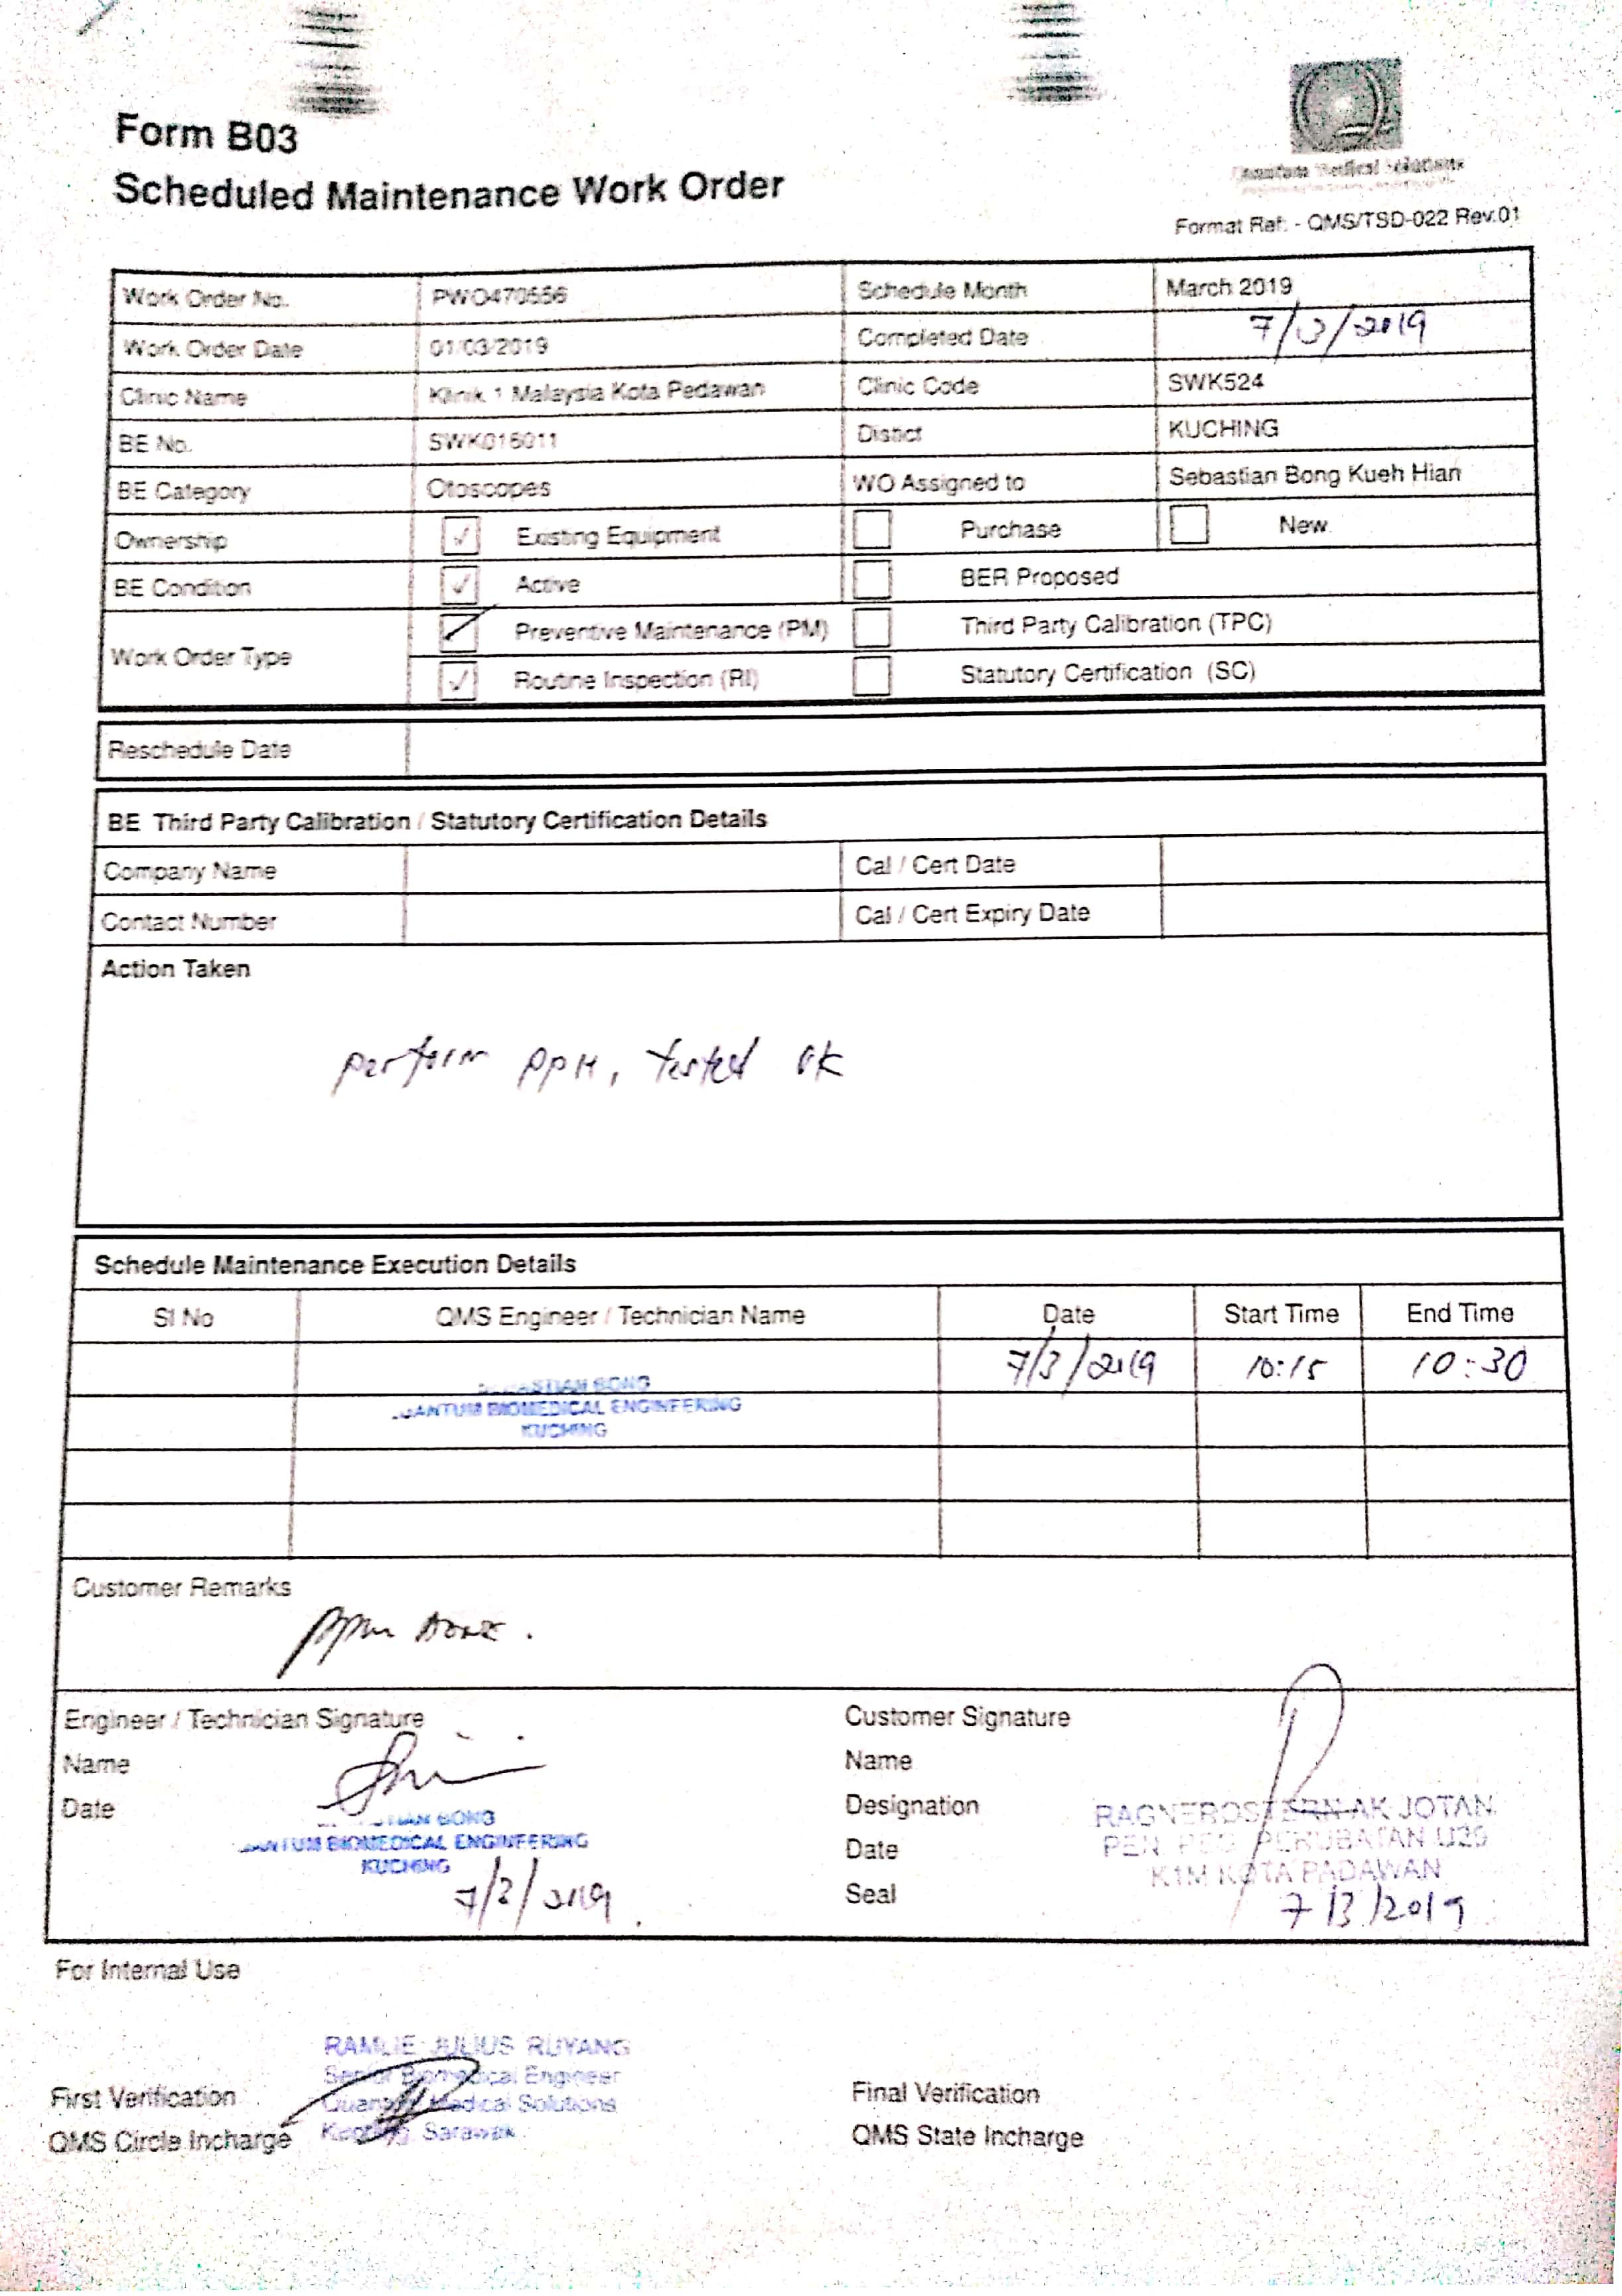 Form B03
Scheduled Maintenance Work Order
Medical Solutions
Format Ref: - QMS/TSD-022 Rev.01
Work Order No. PWO470556 Schedule Month March 2019
Work Order Date 01/03/2019 Completed Date 7/3/2019
Clinic Name Klinik 1 Malaysia Kota Pedawan Clinic Code SWK524
BE No. SWK016011 Distict KUCHING
BE Category Otoscopes WO Assigned to Sebastian Bong Kueh Hian
Ownership ✓ Existing Equipment Purchase New
BE Condition ✓ Active BER Proposed
Work Order Type
Preventive Maintenance (PM) Third Party Calibration (TPC)
✓ Routine Inspection (RI) Statutory Certification (SC)
Reschedule Date
BE Third Party Calibration / Statutory Certification Details
Company Name Cal / Cert Date
Contact Number Cal / Cert Expiry Date
Action Taken
perform PPM, tested ok
Schedule Maintenance Execution Details
Sl No QMS Engineer / Technician Name Date Start Time End Time
7/3/2019 10:15 10:30
BONG
BIOMEDICAL ENGINEERING
KUCHING
Customer Remarks
ppm done.
Engineer / Technician Signature Customer Signature
Name Name
Date Designation
BONG
BIOMEDICAL ENGINEERING
KUCHING
7/3/2019
AK JOTAN
PERUBATAN U29
Date
K1M KOTA PADAWAN
Seal
7/3/2019
For Internal Use
RAMLIE JULIUS RUYANG
Senior Biomedical Engineer
Quantum Medical Solutions
Sarawak
First Verification Final Verification
QMS Circle Incharge QMS State Incharge